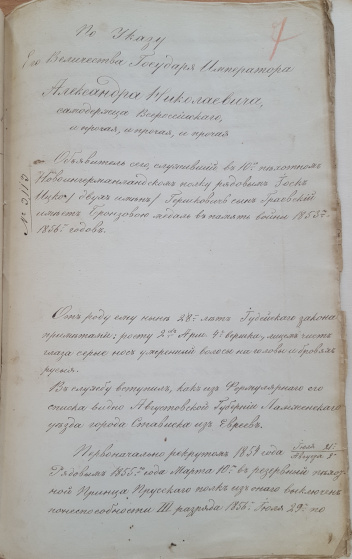 7
По Указу
Его Величества Государя Императора
Александра Николаевича,
самодержца Всероссійскаго,
и прочая, и прочая, и прочая
Объявитель сего, служившій въ 10мъ пѣхотномъ
Новоингерманландскомъ полку рядовымъ Іоск
Ицко / двухъ именъ / Гершковъ сынъ Граевскій
имѣетъ бронзовую медаль въ память войны 1853-
1856 годовъ.
Отъ роду ему нынѣ 28 лѣтъ Іудейскаго закона
примѣтами: росту 2 Арш. 4 вершка, лицемъ чистъ
глаза сѣрые носъ умѣренный волосы на головѣ и бровяхъ
русыя.
Въ службу вступилъ, какъ изъ Формулярнаго его
списка видно Августовской Губерніи Ломженскаго
уѣзда города Стависка изъ Евреевъ.
Первоначально рекрутомъ 1854 года Іюля 21 / Августа 2
Рядовымъ 1855 года Марта 10 въ резервный пѣхот-
ной Принца Прусскаго полкъ изъ онаго выключенъ
по неспособности III разряда 1856 Іюля 29 по